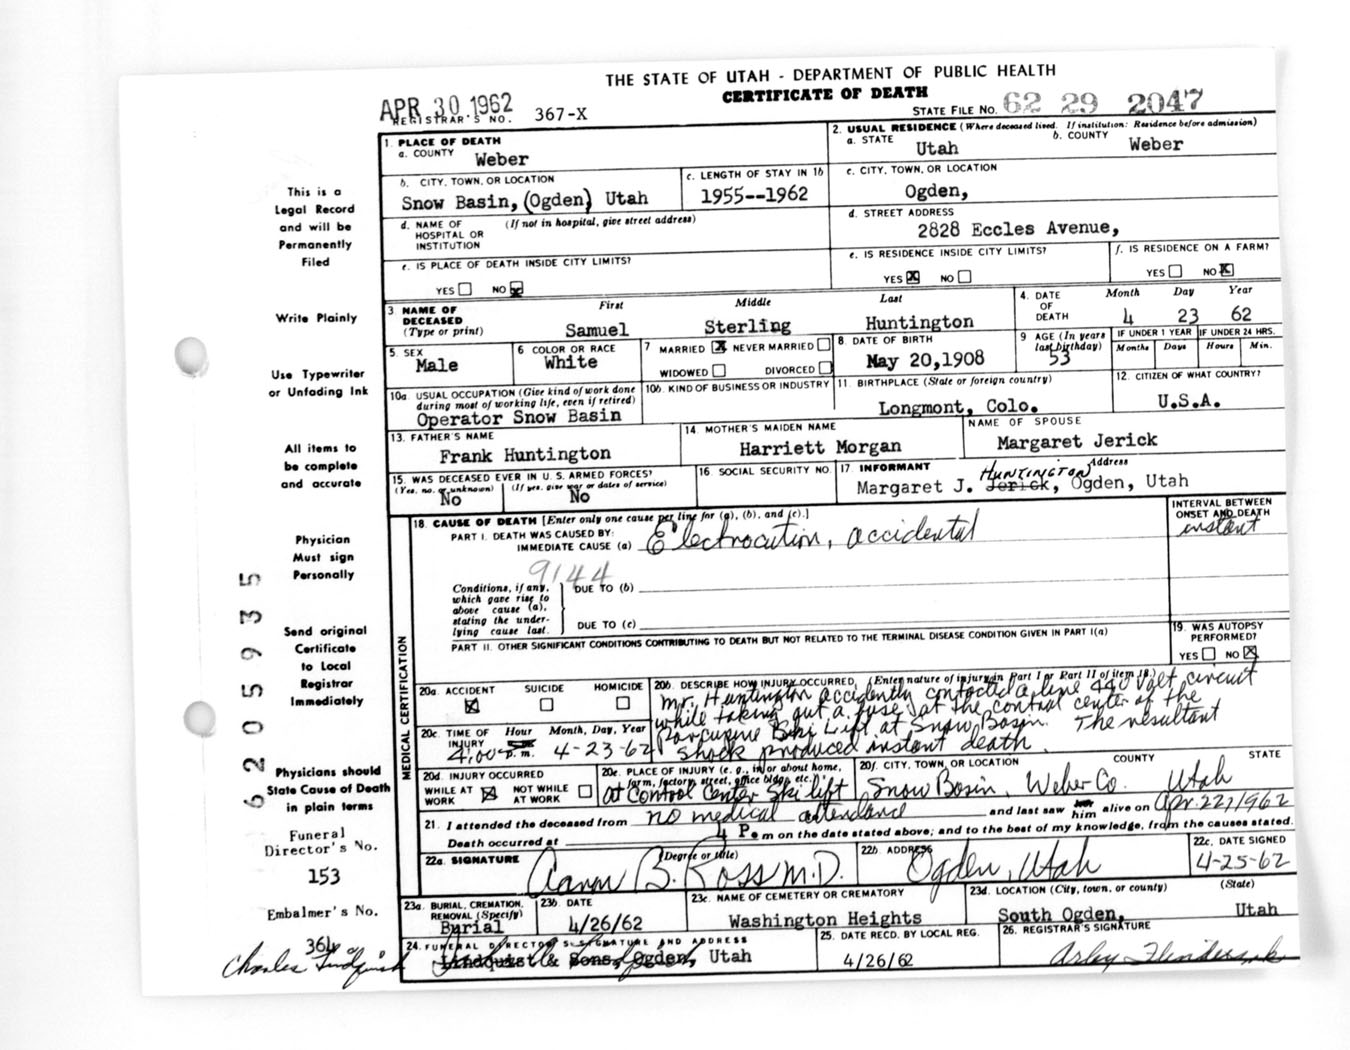 THE STATE OF UTAH - DEPARTMENT OF PUBLIC HEALTH
CERTIFICATE OF DEATH
APR 30 1962
REGISTRAR'S NO. 367-X
STATE FILE NO. 62 29 2047
1. PLACE OF DEATH
a. COUNTY Weber
2. USUAL RESIDENCE (Where deceased lived. If institution: Residence before admission)
a. STATE Utah b. COUNTY Weber
b. CITY, TOWN, OR LOCATION
Snow Basin, (Ogden) Utah
c. LENGTH OF STAY IN 1b
1955--1962
c. CITY, TOWN, OR LOCATION
Ogden,
d. NAME OF HOSPITAL OR INSTITUTION (If not in hospital, give street address)
d. STREET ADDRESS
2828 Eccles Avenue,
e. IS PLACE OF DEATH INSIDE CITY LIMITS?
YES NO X
e. IS RESIDENCE INSIDE CITY LIMITS?
YES X NO
f. IS RESIDENCE ON A FARM?
YES NO X
3 NAME OF DECEASED (Type or print)
First Middle Last
Samuel Sterling Huntington
4. DATE OF DEATH Month Day Year
4 23 62
5. SEX
Male
6 COLOR OR RACE
White
7 MARRIED X NEVER MARRIED
WIDOWED DIVORCED
8. DATE OF BIRTH
May 20,1908
9 AGE (In years last birthday)
53
IF UNDER 1 YEAR IF UNDER 24 HRS.
Months Days Hours Min.
10a. USUAL OCCUPATION (Give kind of work done during most of working life, even if retired)
Operator Snow Basin
10b. KIND OF BUSINESS OR INDUSTRY
11. BIRTHPLACE (State or foreign country)
Longmont, Colo.
12. CITIZEN OF WHAT COUNTRY?
U.S.A.
13. FATHER'S NAME
Frank Huntington
14. MOTHER'S MAIDEN NAME
Harriett Morgan
NAME OF SPOUSE
Margaret Jerick
15. WAS DECEASED EVER IN U. S. ARMED FORCES?
(Yes, no, or unknown) (If yes, give war or dates of service)
No No
16. SOCIAL SECURITY NO.
17. INFORMANT Address
HUNTINGTON
Margaret J. Jerick, Ogden, Utah
MEDICAL CERTIFICATION
18. CAUSE OF DEATH [Enter only one cause per line for (a), (b), and (c).]
PART I. DEATH WAS CAUSED BY:
IMMEDIATE CAUSE (a) Electrocution, accidental
INTERVAL BETWEEN ONSET AND DEATH
instant
9144
Conditions, if any, which gave rise to above cause (a), stating the underlying cause last.
DUE TO (b)
DUE TO (c)
PART II. OTHER SIGNIFICANT CONDITIONS CONTRIBUTING TO DEATH BUT NOT RELATED TO THE TERMINAL DISEASE CONDITION GIVEN IN PART I(a)
19. WAS AUTOPSY PERFORMED?
YES NO X
20a. ACCIDENT SUICIDE HOMICIDE
X
20b. DESCRIBE HOW INJURY OCCURRED. (Enter nature of injury in Part I or Part II of item 18.)
Mr. Huntington accidently contacted a line 440 Volt circuit
while taking out a fuse at the control center of the
Porcupine Ski Lift at Snow Basin. The resultant
shock produced instant death.
20c. TIME OF INJURY Hour Month, Day, Year
4:00 p.m. 4-23-62
20d. INJURY OCCURRED
WHILE AT WORK X NOT WHILE AT WORK
20e. PLACE OF INJURY (e. g., in or about home, farm, factory, street, office bldg., etc.)
at Control Center Ski lift
20f. CITY, TOWN, OR LOCATION COUNTY STATE
Snow Basin, Weber Co. Utah
21. I attended the deceased from no medical attendance and last saw him alive on Apr. 22, 1962
Death occurred at 4 P.m on the date stated above; and to the best of my knowledge, from the causes stated.
22a. SIGNATURE (Degree or title)
Aaron B. Ross M.D.
22b. ADDRESS
Ogden, Utah
22c. DATE SIGNED
4-25-62
23a. BURIAL, CREMATION, REMOVAL (Specify)
Burial
23b. DATE
4/26/62
23c. NAME OF CEMETERY OR CREMATORY
Washington Heights
23d. LOCATION (City, town, or county) (State)
South Ogden, Utah
24. FUNERAL DIRECTOR'S SIGNATURE AND ADDRESS
Lindquist & Sons, Ogden, Utah
25. DATE RECD. BY LOCAL REG.
4/26/62
26. REGISTRAR'S SIGNATURE
This is a
Legal Record
and will be
Permanently
Filed
Write Plainly
Use Typewriter
or Unfading Ink
All items to
be complete
and accurate
Physician
Must sign
Personally
Send original
Certificate
to Local
Registrar
Immediately
Physicians should
State Cause of Death
in plain terms
Funeral
Director's No.
153
Embalmer's No.
364
Charles Lindquist
6205935